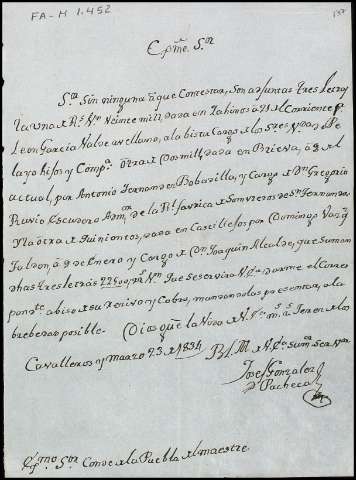 FA-H 1.452
Exmo. Sor
Sor. Sin ninguna á que Contestar, son adjuntas tres Letras
la una de Rs. Vn. Veinte mil, dada en Tabinos á 21 del Corriente Pr.
Leon Garcia Nalve avellano, á la bista Cargo de los Sres. Vda. de
lazo hijos y Compa. Otra de Dos mil, dada en Brieva, á 9 del
actual, por Antonio Fernando en Bobadilla, y Cargo de Dn. Gregorio
Ruvio Escudero Admor. de la Rl. favrica de Somvreros de Sn. Fernando.
Y la otra de Quinientos, dada en Castilfrío por Domingo
á 9 de Enero y Cargo de Dn. Joaquin Alcalde, que suman
dhas tres letras 22500 rs. Vn. que se servira V.E. darme el Corres
pondte. abiso de su Recivo y Cobro, mandandolas presentar, á la
brebedad posible. Dios gue. la Vida de V.E. ms. as.
Cavalleros y marzo 23 de 1834
B.L.M. de V.E. su mas Servor.
Josef Gonzalez
de Pacheca
Exmo. Sor. Conde de la Puebla del maestre.